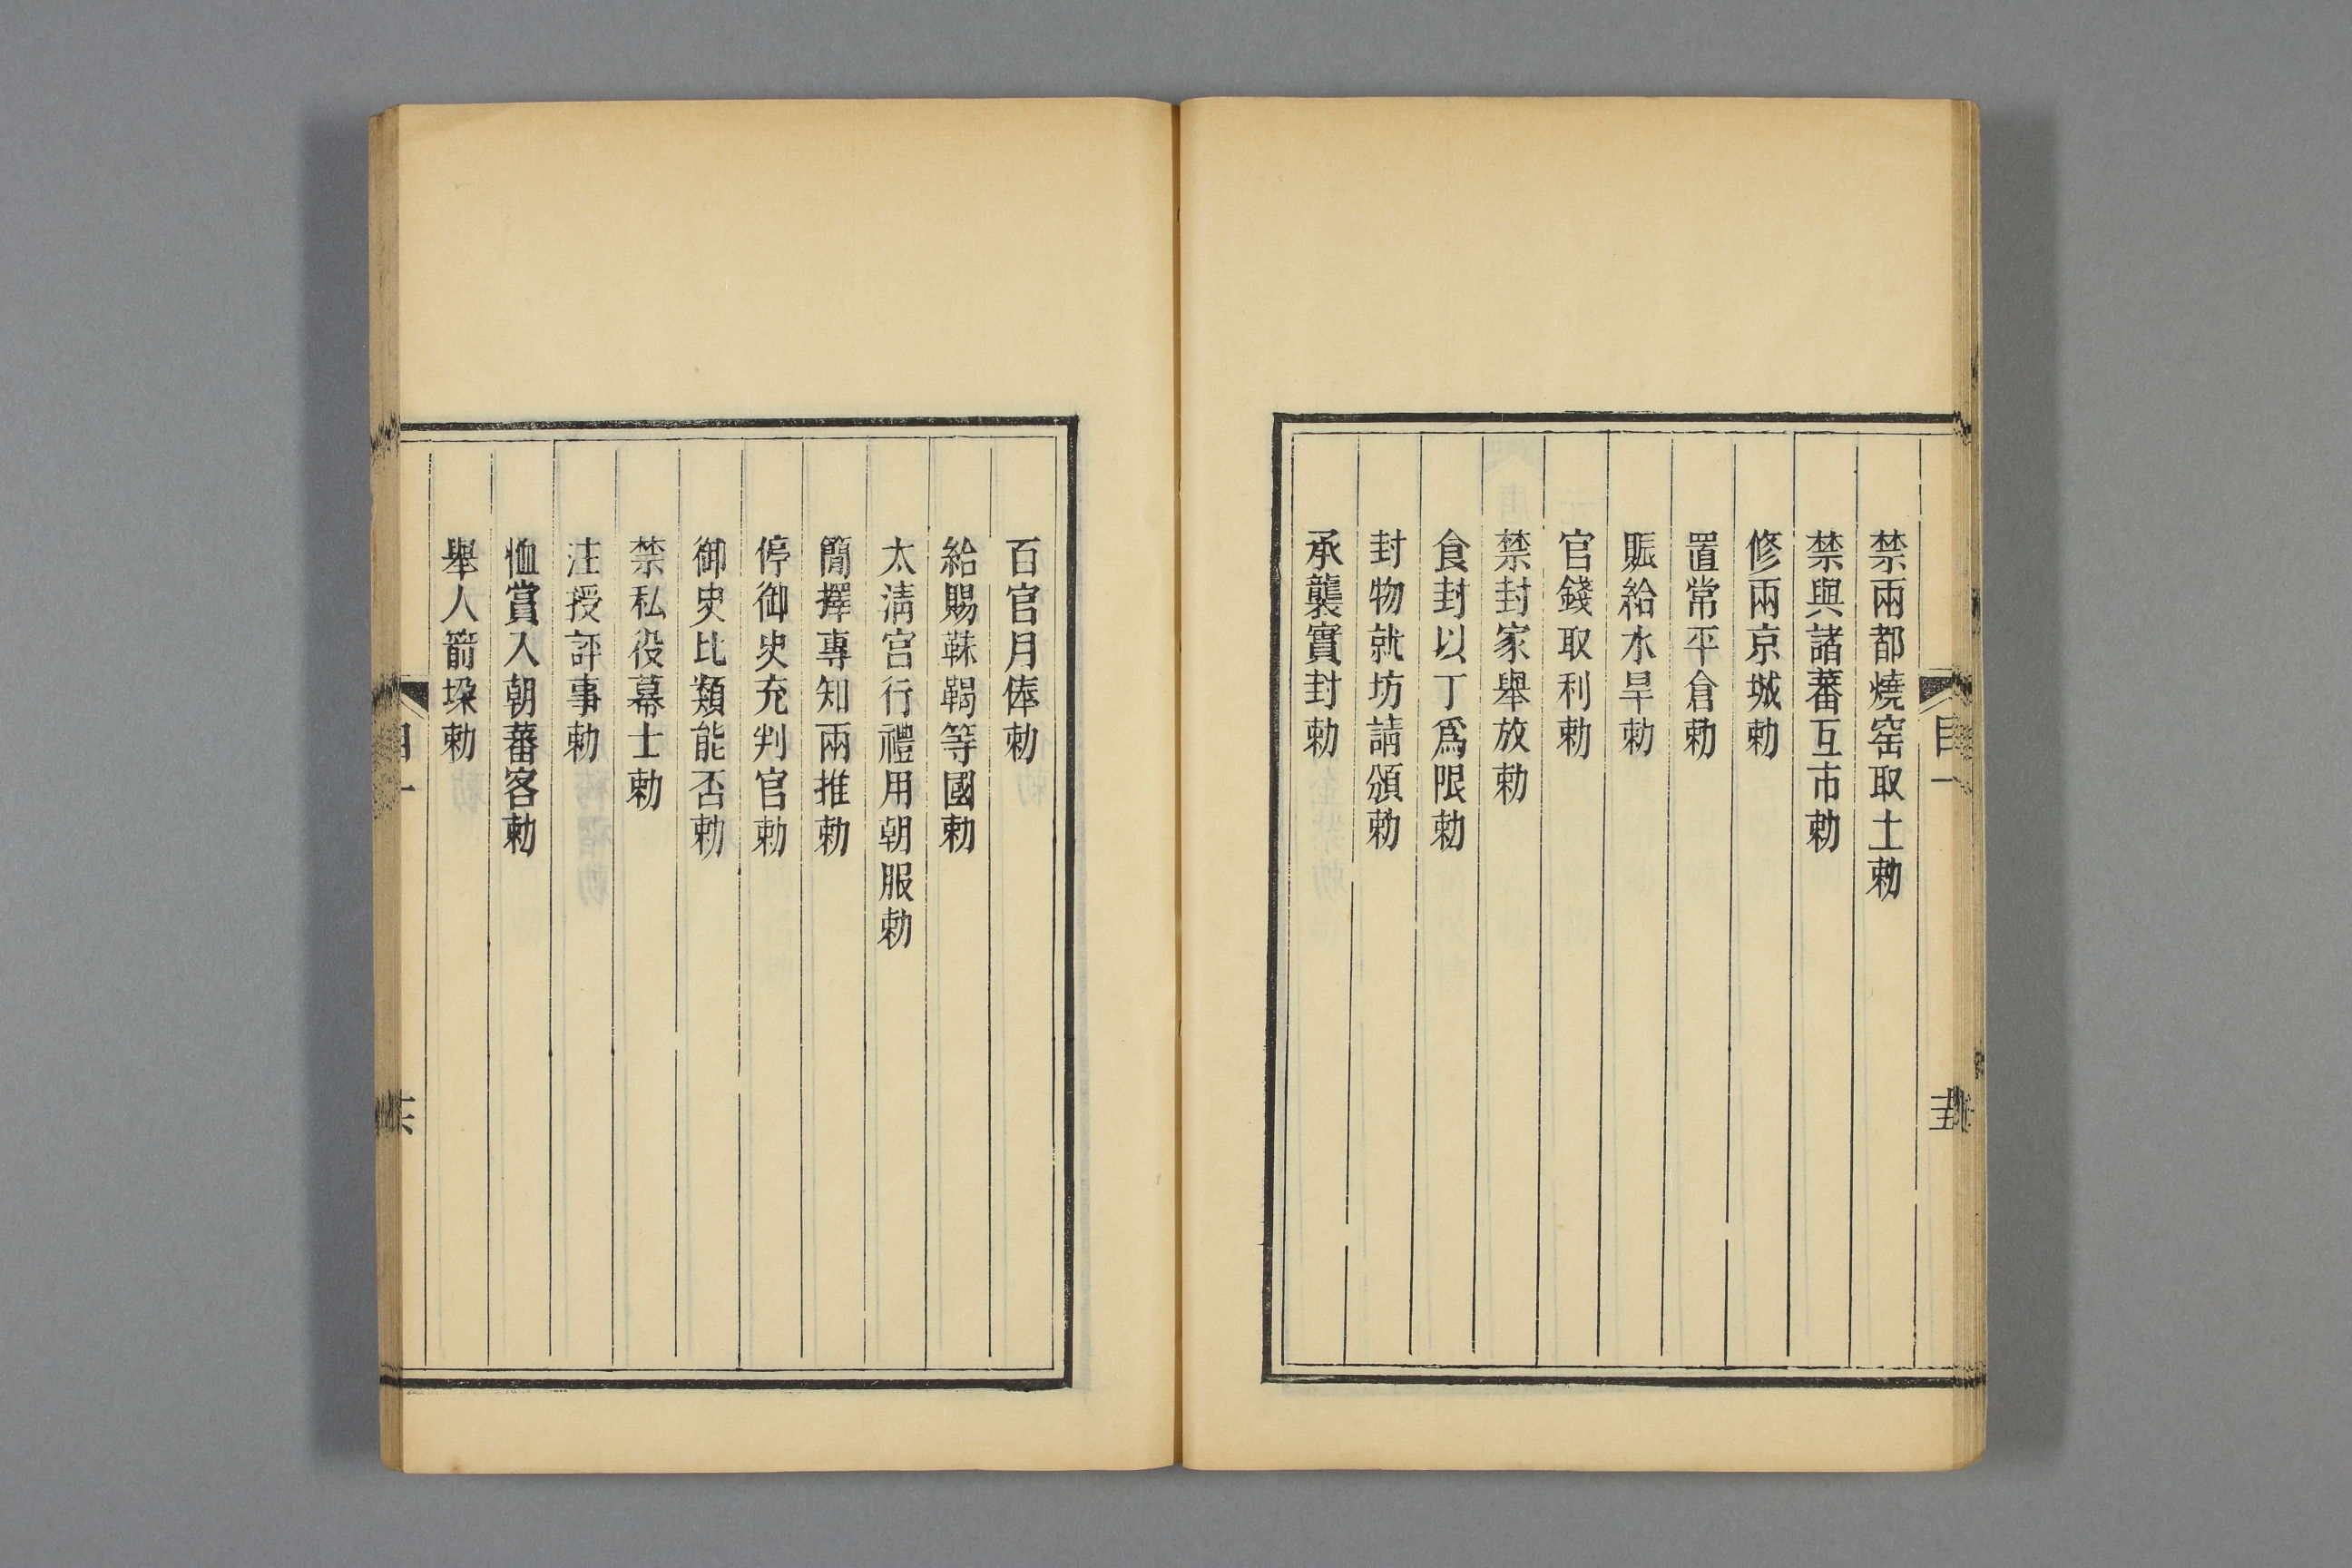 禁兩都燒窑取土勅
禁與諸蕃互市勅
修兩京城勅
置常平倉勅
賑給水旱勅
官錢取利勅
禁封家舉放勅
食封以丁爲限勅
封物就坊請頒勅
承襲實封勅
百官月俸勅
給賜靺鞨等國勅
太清宮行禮用朝服勅
簡擇專知兩推勅
停御史充判官勅
御史比類能否勅
禁私役幕士勅
注授評事勅
恤賞入朝蕃客勅
舉人箭垛勅